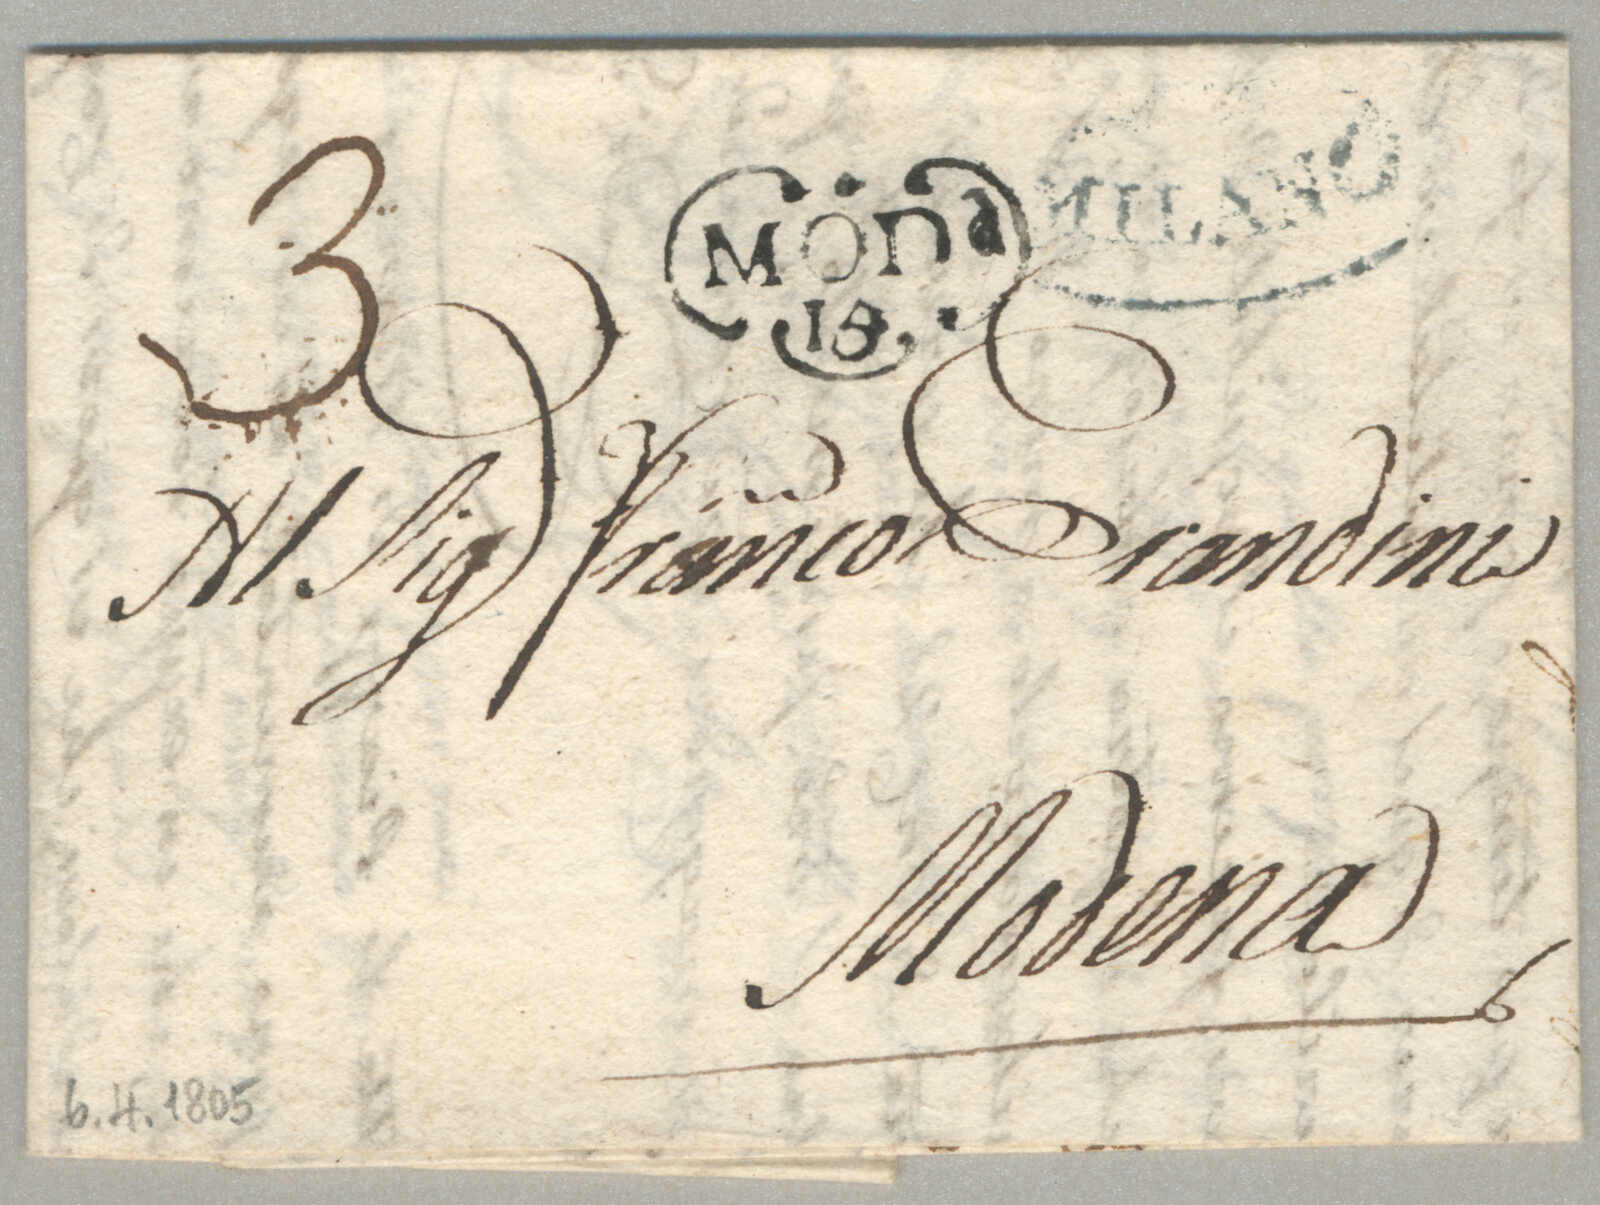 3
MILANO
MODa
15
Al Sig Franco Grandini
Modena
6.4.1805